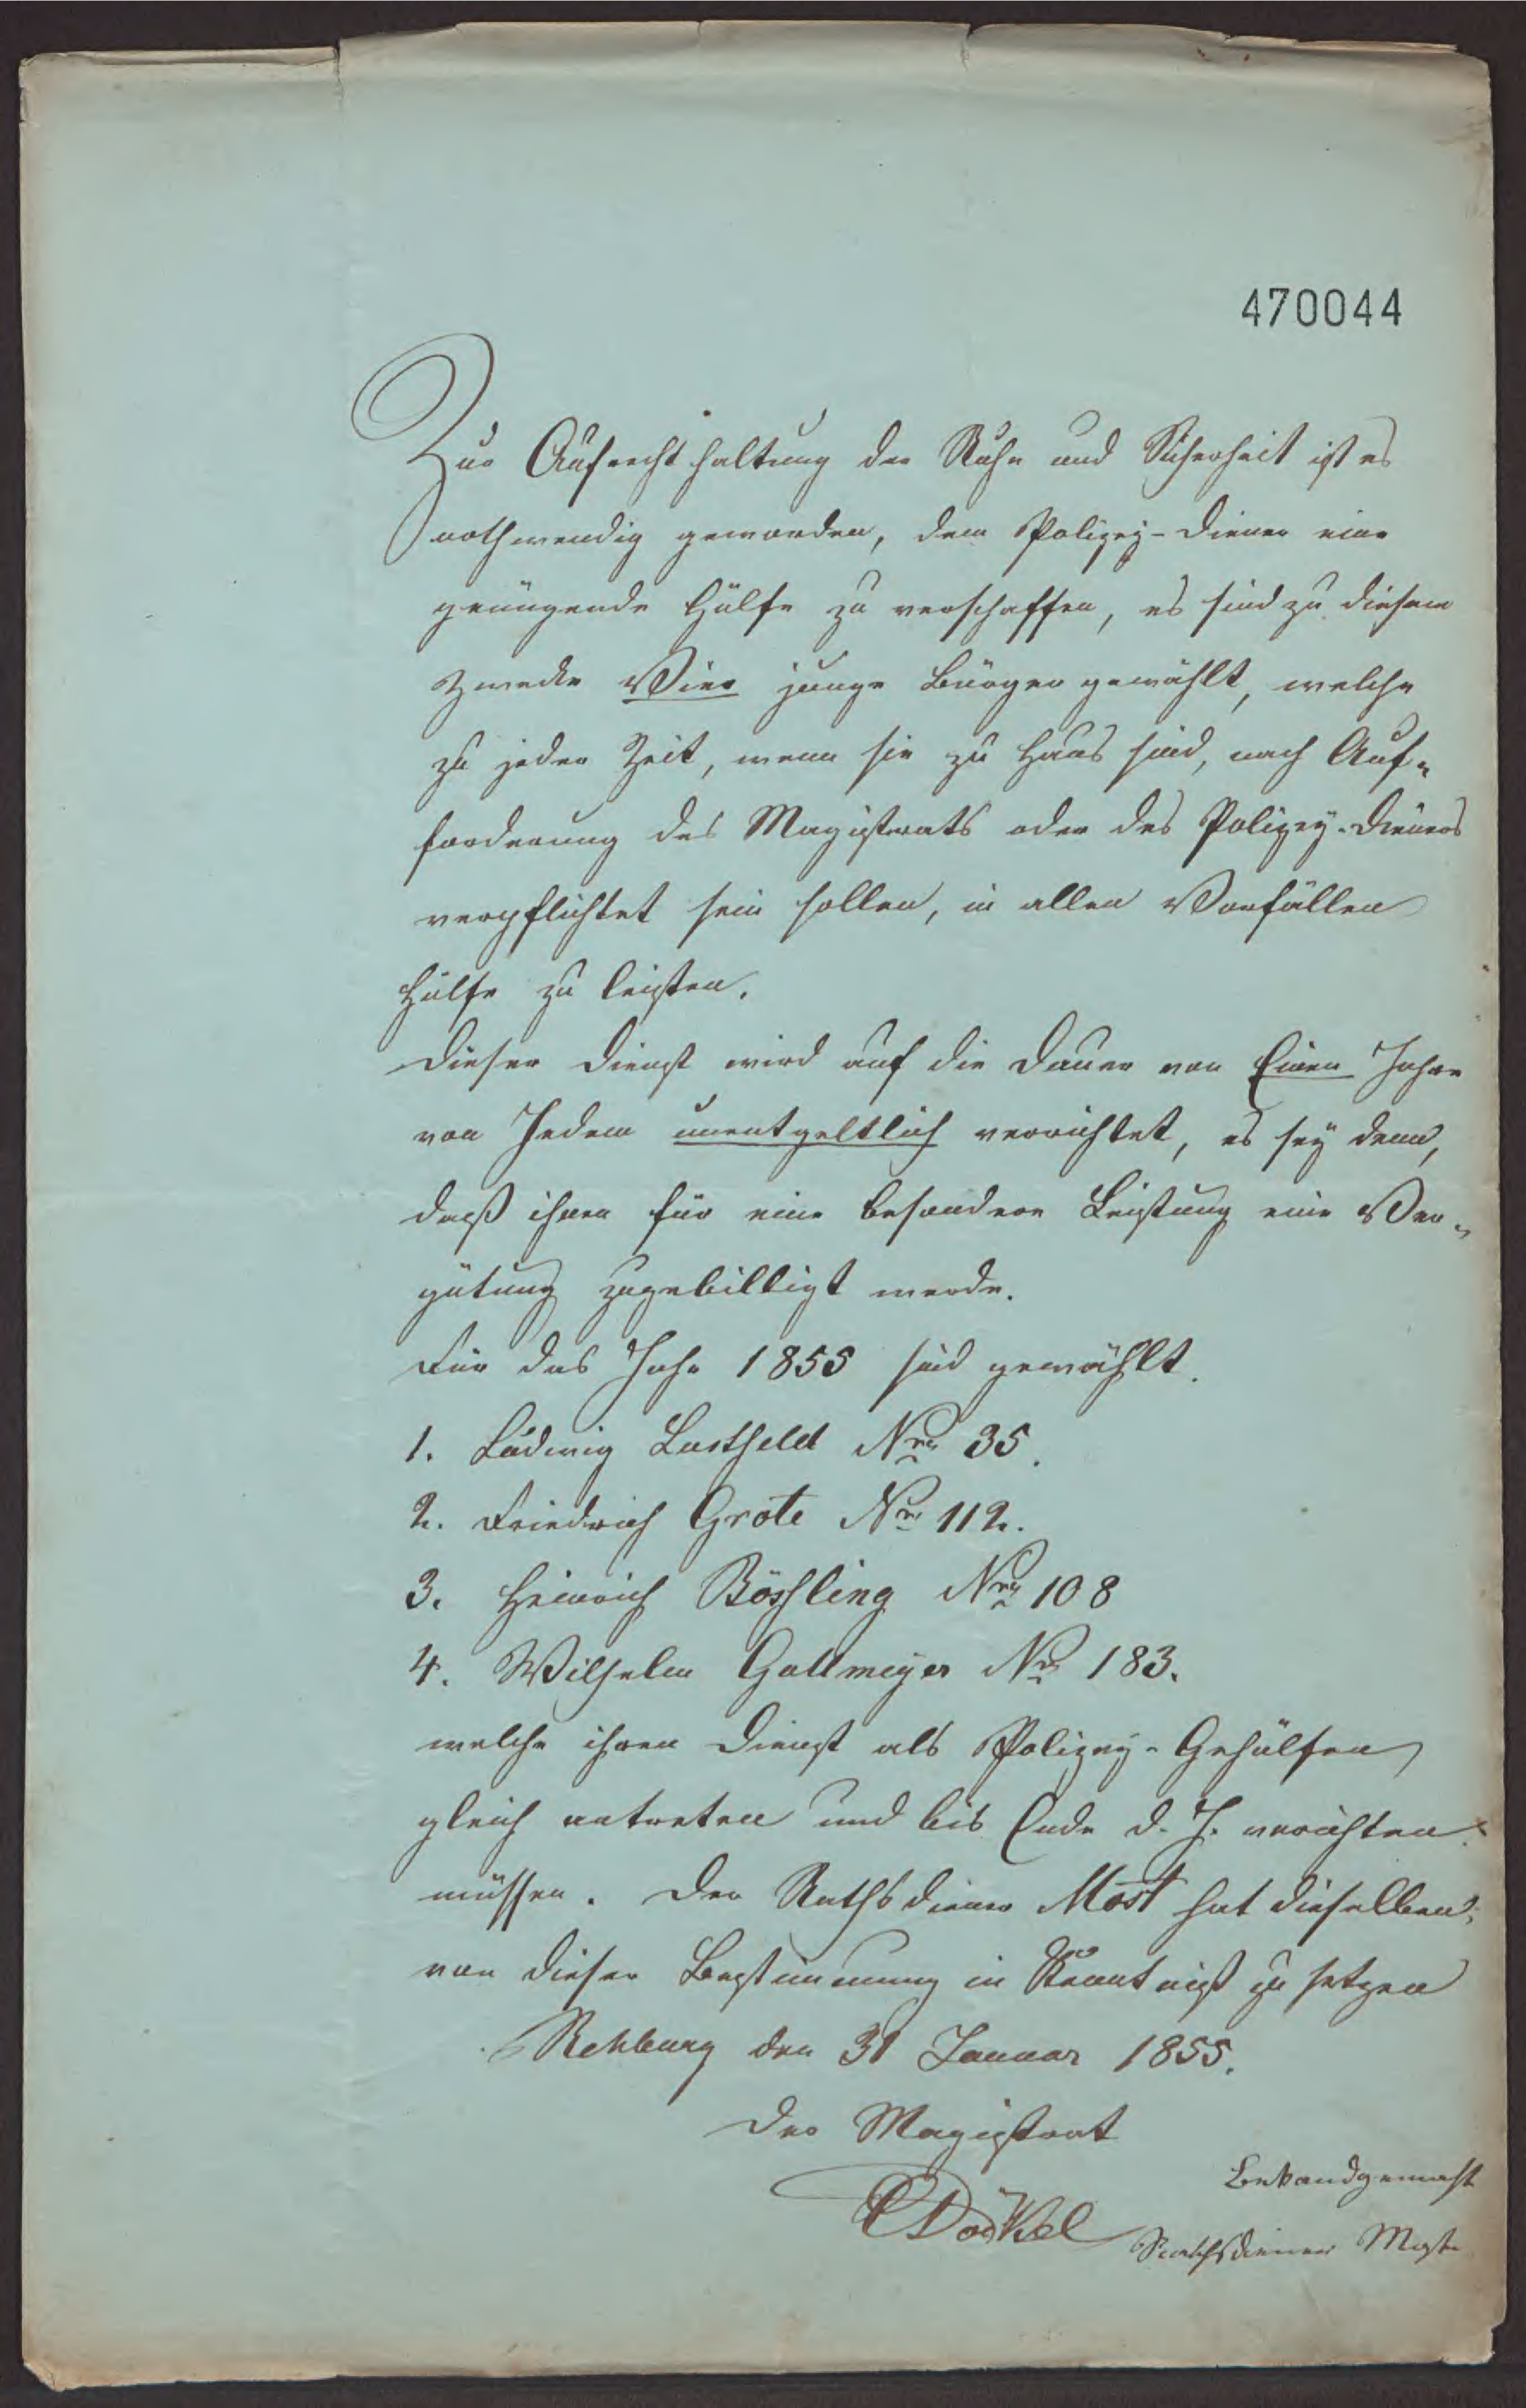 470044
Zur Aufrechthaltung der Ruhe und Sicherheit ist es
nothwendig geworden, dem Polizey-Diener eine
genügende Hülfe zu verschaffen, es sind zu diesem
Zwecke Vier junge Bürger gewählt, welche
zu jeder Zeit, wenn sie zu Haus sind, nach Auf-
forderung des Magistrats oder des Polizey-Dieners
verpflichtet sein sollen, in allen Vorfällen
Hülfe zu leisten.
Dieser Dienst wird auf die Dauer von Einen Jahre
von Jedem unentgeltlich verrichtet, es sey denn,
daß ihnen für eine besondere Leistung eine Ver-
gütung zugebilligt werde.
Für das Jahr 1855 sind gewählt.
1. Ludwig Lustfeld Nro 35.
2. Friedrich Grote Nro 112.
3. Heinrich Bössling Nro 108
4. Wilhelm Gallmeyer Nro 183.
welche ihren Dienst als Polizey-Gehülfen
gleich antreten und bis Ende d. J. verrichten
müssen. Der Rathsdiener Most hat dieselben
von dieser Bestimmung in Kenntniß zu setzen
Rehburg den 31 Januar 1855.
Der Magistrat
Bekandgemacht
Rathsdiener Most